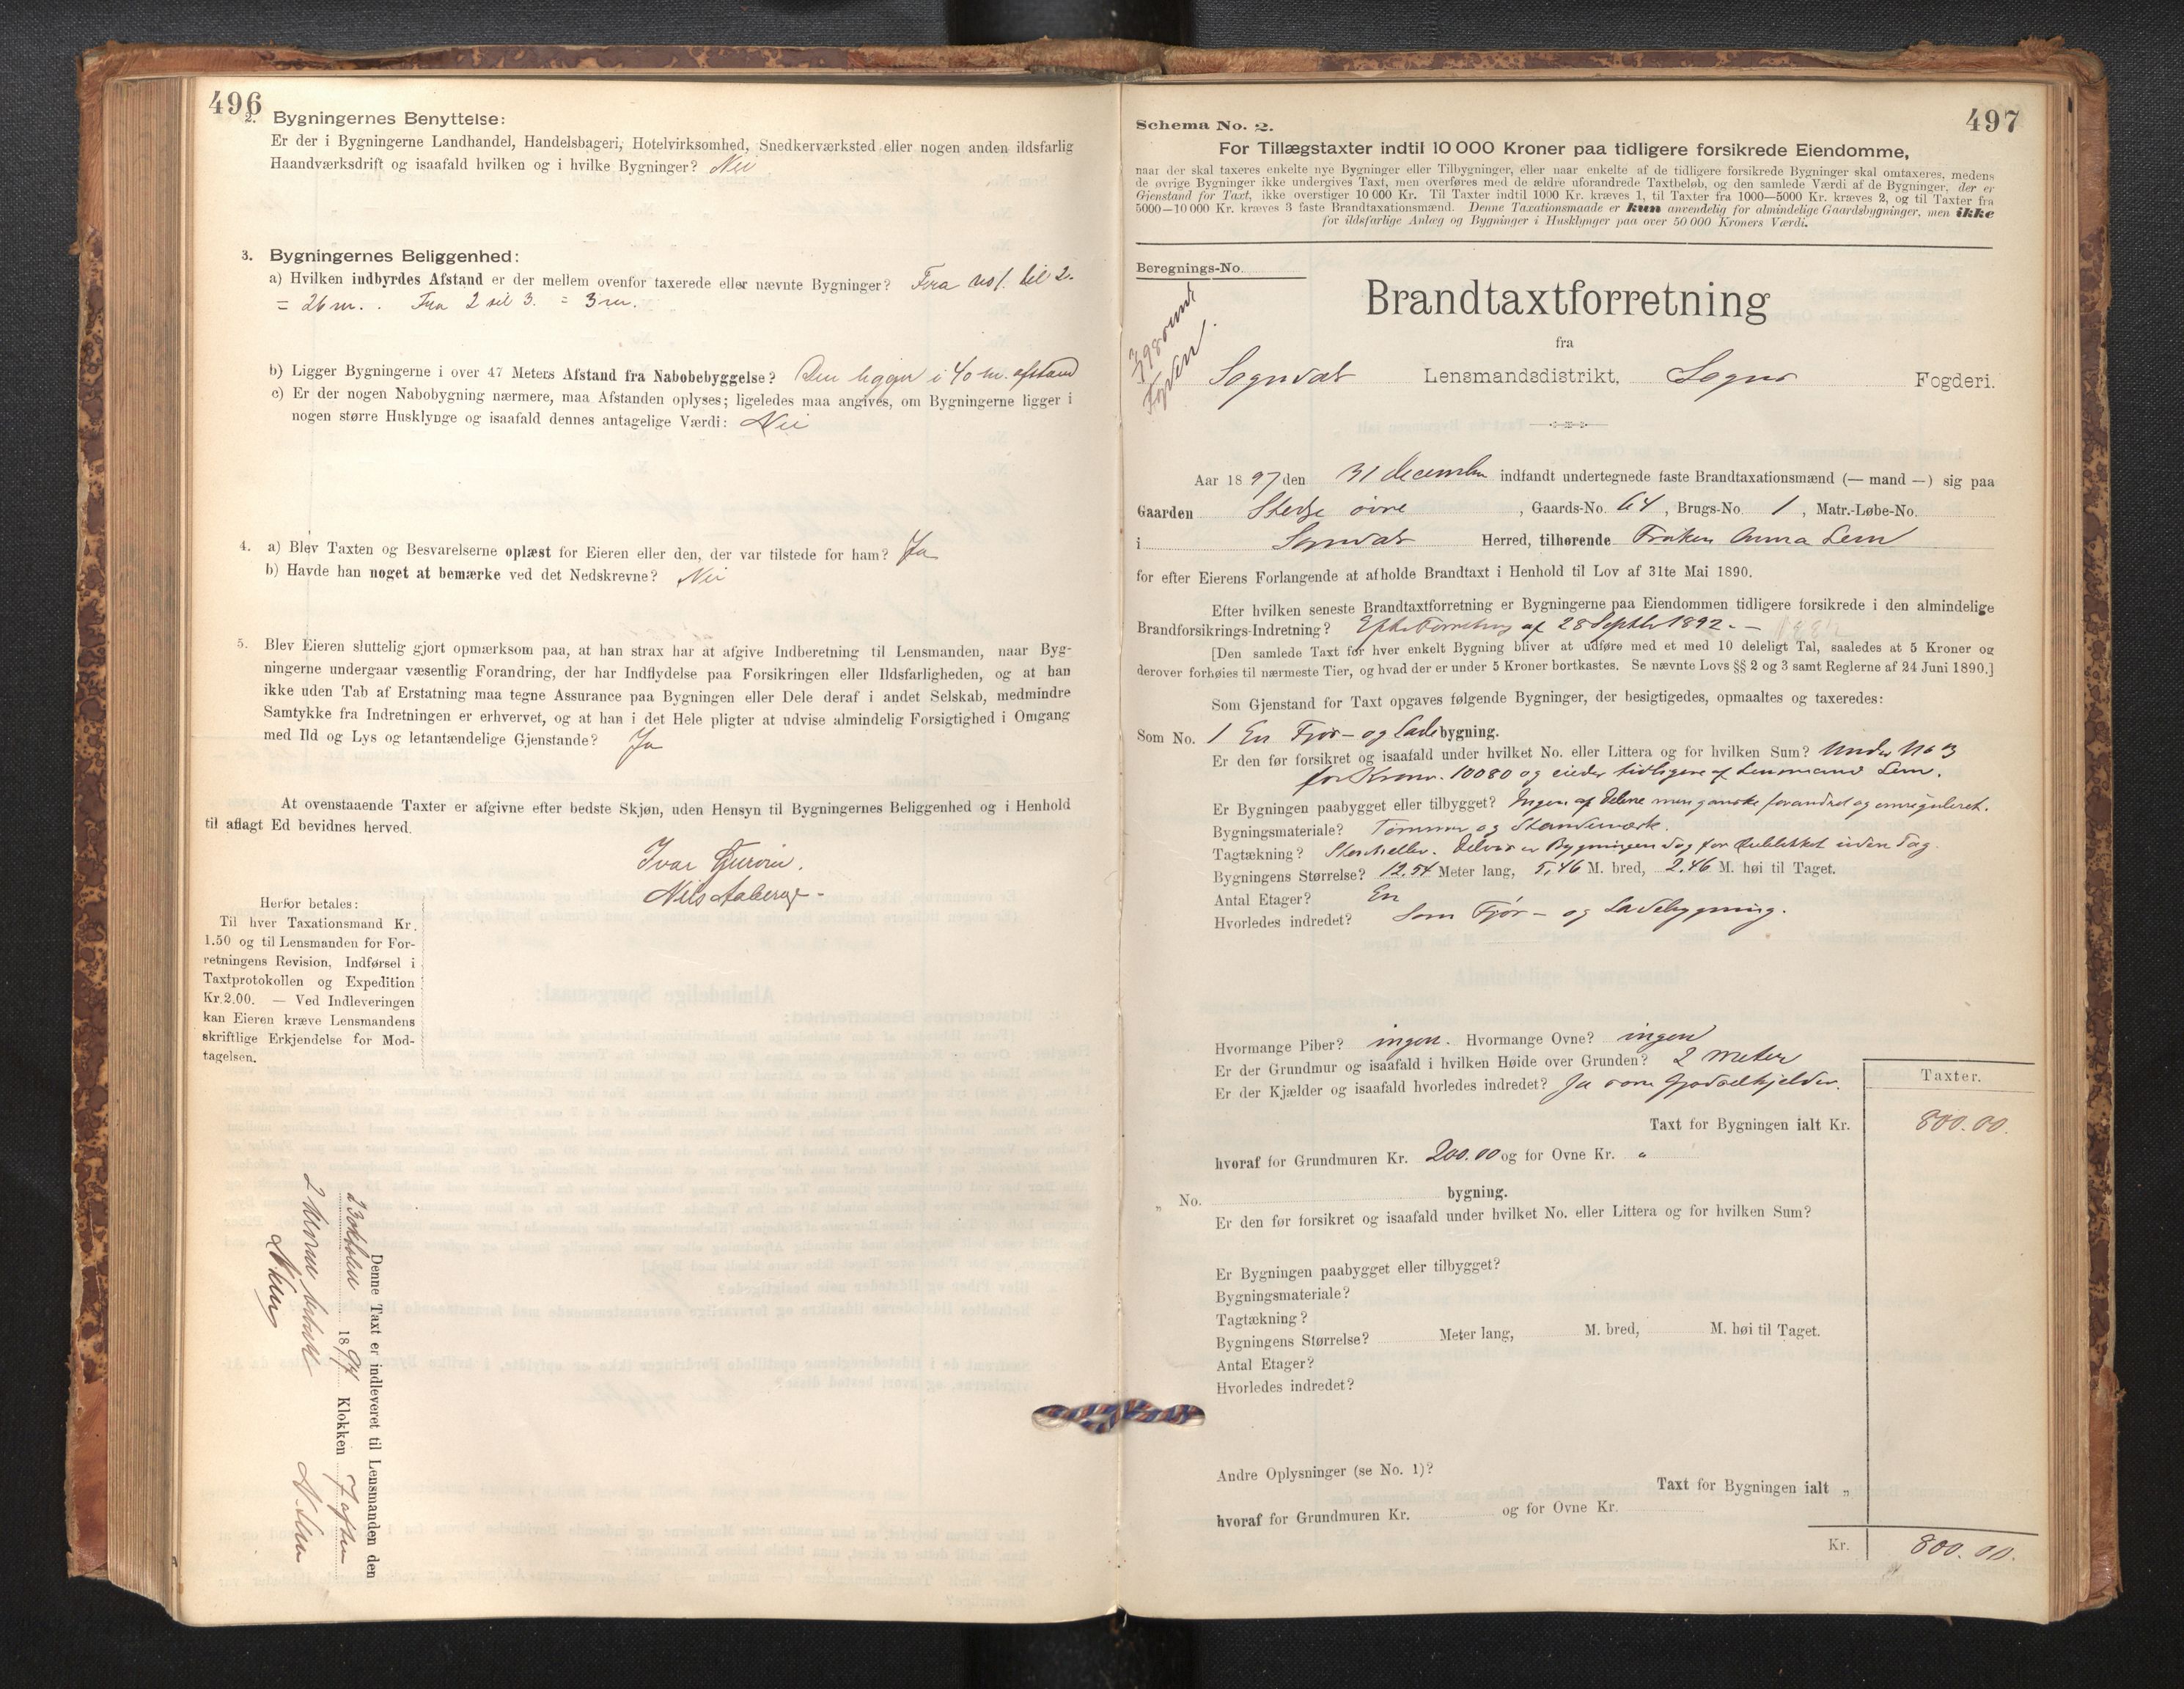 496
2. Bygningernes Benyttelse:
Er der i Bygningerne Landhandel, Handelsbageri, Hotelvirksomhed, Snedkerværksted eller nogen anden ildsfarlig
Haandværksdrift og isaafald hvilken og i hvilke Bygninger? Nei
3. Bygningernes Beliggenhed:
a) Hvilken indbyrdes Afstand er der mellem ovenfor taxerede eller nævnte Bygninger? Fra no 1. til 2.
= 26 m. . Fra 2 til 3. = 3 m.
b) Ligger Bygningerne i over 47 Meters Afstand fra Nabobebyggelse? Den ligger i 40 m. afstand
c) Er der nogen Nabobygning nærmere, maa Afstanden oplyses; ligeledes maa angives, om Bygningerne ligger i
nogen større Husklynge og isaafald dennes antagelige Værdi: Nei
4. a) Blev Taxten og Besvarelserne oplæst for Eieren eller den, der var tilstede for ham? Ja
b) Havde han noget at bemærke ved det Nedskrevne? Nei
5. Blev Eieren sluttelig gjort opmærksom paa, at han strax har at afgive Indberetning til Lensmanden, naar Byg-
ningerne undergaar væsentlig Forandring, der har Indflydelse paa Forsikringen eller Ildsfarligheden, og at han
ikke uden Tab af Erstatning maa tegne Assurance paa Bygningen eller Dele deraf i andet Selskab, medmindre
Samtykke fra Indretningen er erhvervet, og at han i det Hele pligter at udvise almindelig Forsigtighed i Omgang
med Ild og Lys og letantændelige Gjenstande? Ja
At ovenstaaende Taxter er afgivne efter bedste Skjøn, uden Hensyn til Bygningernes Beliggenhed og i Henhold
til aflagt Ed bevidnes herved.
Ivar
Nils Aaberge -
Herfor betales:
Til hver Taxationsmand Kr.
1.50 og til Lensmanden for For-
retningens Revision, Indførsel i
Taxtprotokollen og Expedition
Kr. 2.00. — Ved Indleveringen
kan Eieren kræve Lensmandens
skriftlige Erkjendelse for Mod-
tagelsen.
Denne Taxt er indleveret til Lensmanden den
23 oktober 1897 Klokken 7 aften
2 Kroner betalt N. Lem
N. Lem
497
Schema No. 2.
For Tillægstaxter indtil 10 000 Kroner paa tidligere forsikrede Eiendomme,
naar der skal taxeres enkelte nye Bygninger eller Tilbygninger, eller naar enkelte af de tidligere forsikrede Bygninger skal omtaxeres, medens
de øvrige Bygninger ikke undergives Taxt, men overføres med de ældre uforandrede Taxtbeløb, og den samlede Værdi af de Bygninger, der er
Gjenstand for Taxt, ikke overstiger 10 000 Kr. Til Taxter indtil 1000 Kr. kræves 1, til Taxter fra 1000—5000 Kr. kræves 2, og til Taxter fra
5000—10 000 Kr. kræves 3 faste Brandtaxationsmænd. Denne Taxationsmaade er kun anvendelig for almindelige Gaardsbygninger, men ikke
for ildsfarlige Anlæg og Bygninger i Husklynger paa over 50 000 Kroners Værdi.
Beregnings-No.
Brandtaxtforretning
fra
Sogndal Lensmandsdistrikt, Sogns Fogderi.
Aar 1897 den 31 december indfandt undertegnede faste Brandtaxationsmænd (— mand —) sig paa
Gaarden Stedje øvre, Gaards-No. 64, Brugs-No. 1, Matr.-Løbe-No.
i Sogndal Herred, tilhørende Frøken Anna Lem
for efter Eierens Forlangende at afholde Brandtaxt i Henhold til Lov af 31te Mai 1890.
Efter hvilken seneste Brandtaxtforretning er Bygningerne paa Eiendommen tidligere forsikrede i den almindelige
Brandforsikrings-Indretning? Efter Forretning af 28 Septbr 1892. —
[Den samlede Taxt for hver enkelt Bygning bliver at udføre med et med 10 deleligt Tal, saaledes at 5 Kroner og
derover forhøies til nærmeste Tier, og hvad der er under 5 Kroner bortkastes. Se nævnte Lovs §§ 2 og 3 samt Reglerne af 24 Juni 1890.]
Som Gjenstand for Taxt opgaves følgende Bygninger, der besigtigedes, opmaaltes og taxeredes:
Som No. 1 En Fjøs- og Ladebygning.
Er den før forsikret og isaafald under hvilket No. eller Littera og for hvilken Sum? Under No 3
for Kroner 10080 og eiedes tidligere af Lensmand Lem.
Er Bygningen paabygget eller tilbygget? Ingen af Delene men ganske forandret og omreguleret.
Bygningsmateriale? Tømmer og Standerværk.
Tagtækning? Stenheller. Delvis er Bygningen Tag for dublikket uden Tag.
Bygningens Størrelse? 12.54 Meter lang, 5,46 M. bred, 2.46 M. høi til Taget.
Antal Etager? En
Hvorledes indredet? Som Fjør- og Ladebygning.
Hvormange Piber? ingen. Hvormange Ovne? ingen
Er der Grundmur og isaafald i hvilken Høide over Grunden? 2 meter
Er der Kjælder og isaafald hvorledes indredet? Ja som Gjødselkjelder.
Taxter.
Taxt for Bygningen ialt Kr. 800.00.
hvoraf for Grundmuren Kr. 200.00 og for Ovne Kr. "
„ No. bygning.
Er den før forsikret og isaafald under hvilket No. eller Littera og for hvilken Sum?
Er Bygningen paabygget eller tilbygget?
Bygningsmateriale?
Tagtækning?
Bygningens Størrelse? Meter lang, M. bred, M. høi til Taget.
Antal Etager?
Hvorledes indredet?
Andre Oplysninger (se No. 1)?
Taxt for Bygningen ialt „
hvoraf for Grundmuren Kr. og for Ovne Kr.
Kr. 800.00.